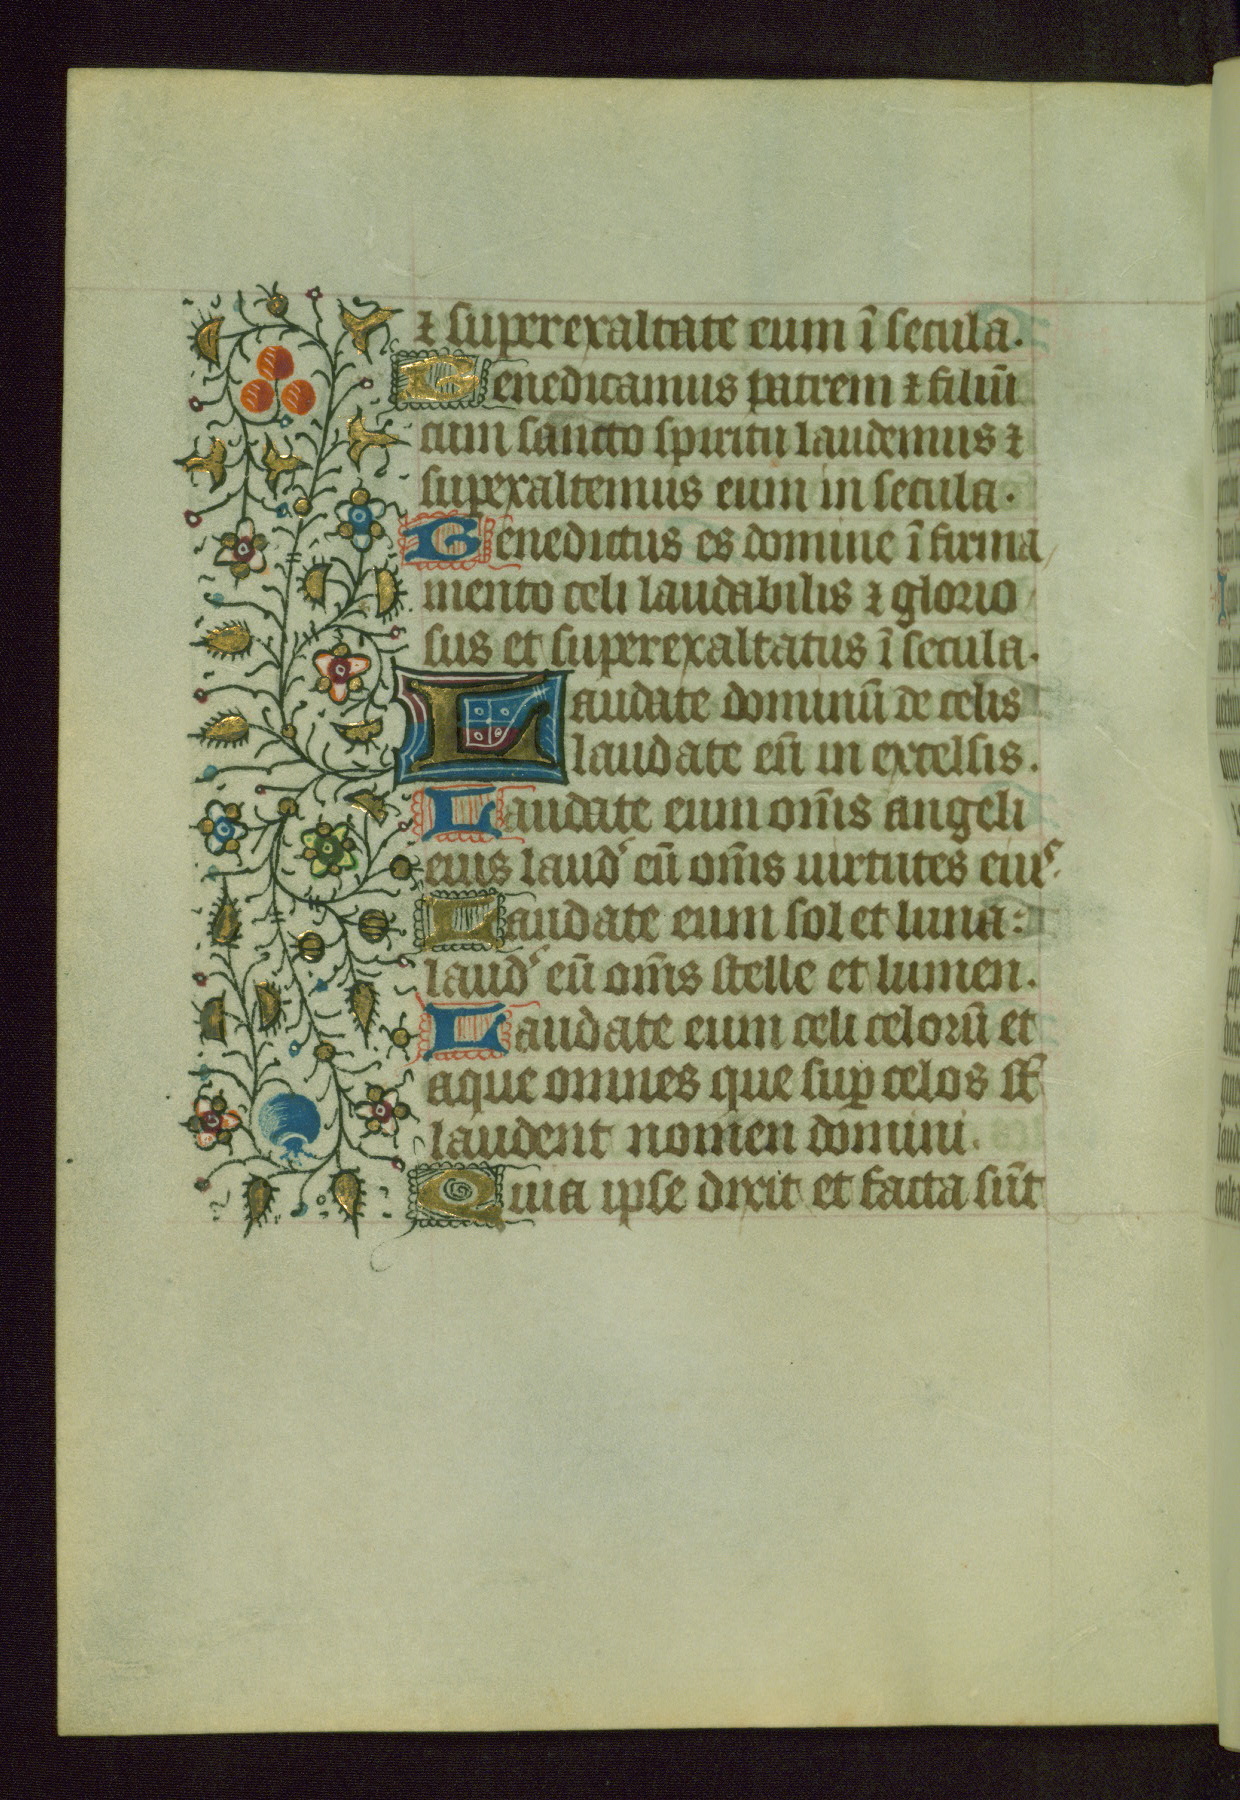 ⁊ superexaltate eum ī secula.
Benedicamus patrem ⁊ filiū
cum sancto spiritu laudemus ⁊
supexaltemus eum in secula.
Benedictus es domine ī firma
mento celi laudabilis ⁊ glorio
sus et superexaltatus ī secula.
Laudate dominū de celis
laudate eū in excelsis.
Laudate eum om̄s angeli
eius laud' eū om̄s uirtutes eiꝰ.
Laudate eum sol et luna:
laud' eū om̄s stelle et lumen.
Laudate eum celi celorū et
aque omnes que suꝑ celos st̄
laudent nomen domini.
Quia ipse dixit et facta sūt